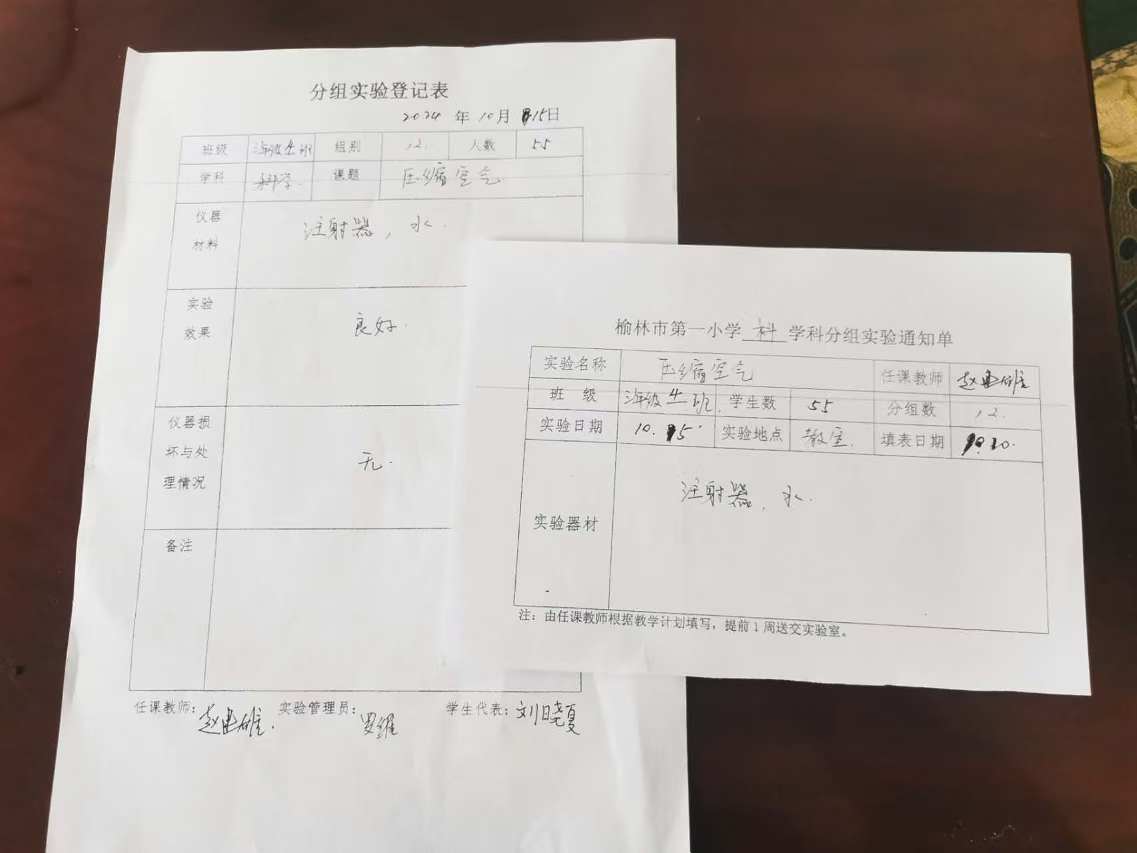 分组实验登记表
2024 年 10 月 15日
班级 三年级 班 组别 12. 人数 55
学科 科学. 课题 压缩空气
仪器材料 注射器, 水.
实验效果 良好.
仪器损坏与处理情况 无.
备注
任课教师: 赵 雄. 实验管理员: 罗维 学生代表: 刘晓夏
榆林市第一小学 科 学科分组实验通知单
实验名称 压缩空气 任课教师 赵 雄
班 级 三年级 班. 学生数 55 分组数 12.
实验日期 10.15 实验地点 教室. 填表日期 10.
实验器材 注射器, 水.
注: 由任课教师根据教学计划填写, 提前1周送交实验室。